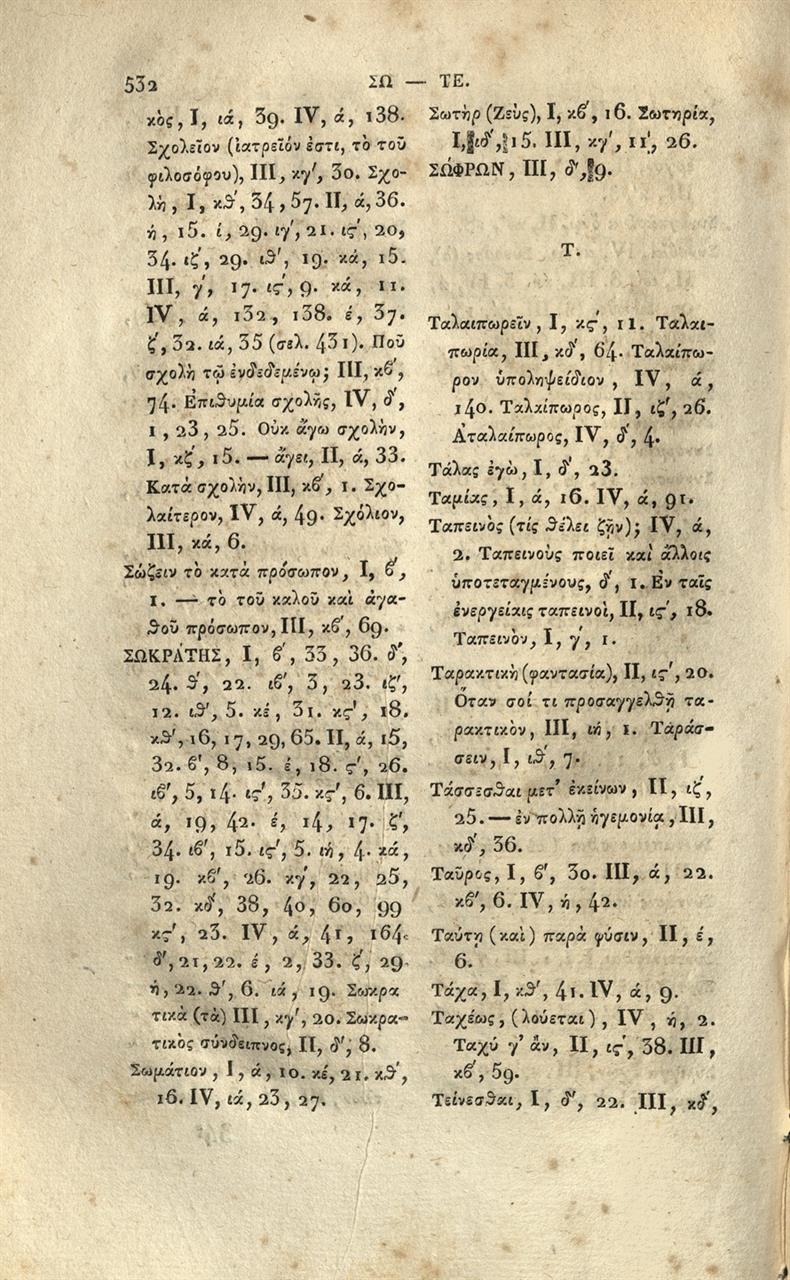 532 ΣΩ — ΤΕ.
κὸς, I, ιά, 39. IV, ά, 138.
Σχολεῖον (ἰατρεῖόν ἐστι, τὸ τοῦ
φιλοσόφου), III, κγ', 30. Σχο-
λὴ, I, κθ', 34, 57. II, ά, 36.
ή, 15. ί, 29. ιγ', 21. ις', 20,
34. ιζ', 29. ιθ', 19. κά, 15.
III, γ', 17. ις', 9. κά, 11.
IV, ά, 132, 138. έ, 37.
ζ', 32. ιά, 35 (σελ. 431). Ποῦ
σχολὴ τῷ ἐνδεδεμένῳ; III, κβ',
74. Ἐπιθυμία σχολῆς, IV, δ',
1, 23, 25. Οὐκ ἄγω σχολὴν,
I, κζ', 15. — ἄγει, II, ά, 33.
Κατὰ σχολὴν, III, κβ', 1. Σχο-
λαίτερον, IV, ά, 49. Σχόλιον,
III, κά, 6.
Σώζειν τὸ κατὰ πρόσωπον, I, β',
1. — τὸ τοῦ καλοῦ καὶ ἀγα-
θοῦ πρόσωπον, III, κβ', 69.
ΣΩΚΡΑΤΗΣ, I, β', 33, 36. δ',
24. θ', 22. ιβ', 3, 23. ιζ',
12. ιθ', 5. κέ, 31. κς', 18.
κθ', 16, 17, 29, 65. II, ά, 15,
32. β', 8, 15. έ, 18. ς', 26.
ιβ', 5, 14. ις', 35. κς', 6. III,
ά, 19, 42. έ, 14, 17. ζ',
34. ιβ', 15. ις', 5. ιή, 4. κά,
19. κβ', 26. κγ', 22, 25,
32. κδ', 38, 40, 60, 99
κς', 23. IV, ά, 41, 164.
δ', 21, 22. έ, 2, 33. ζ', 29.
ή, 22. θ', 6. ιά, 19. Σωκρα
τικὰ (τὰ) III, κγ', 20. Σωκρα-
τικὸς σύνδειπνος, II, δ', 8.
Σωμάτιον, I, ά, 10. κέ, 21. κθ',
16. IV, ιά, 23, 27.
Σωτὴρ (Ζεὺς), I, κβ', 16. Σωτηρία,
I, ιδ', 15. III, κγ', 11, 26.
ΣΩΦΡΩΝ, III, δ', 9.
Τ.
Ταλαιπωρεῖν, I, κς', 11. Ταλαι-
πωρία, III, κδ', 64. Ταλαίπω-
ρον ὑποληψείδιον, IV, ά,
140. Ταλαίπωρος, II, ιζ', 26.
Ἀταλαίπωρος, IV, δ', 4.
Τάλας ἐγὼ, I, δ', 23.
Ταμίας, I, ά, 16. IV, ά, 91.
Ταπεινὸς (τίς θέλει ζῆν); IV, ά,
2. Ταπεινοὺς ποιεῖ καὶ ἄλλοις
ὑποτεταγμένους, δ', 1. Ἐν ταῖς
ἐνεργείαις ταπεινοὶ, II, ις', 18.
Ταπεινὸν, I, γ', 1.
Ταρακτικὴ (φαντασία), II, ις', 20.
Ὅταν σοί τι προσαγγελθῇ τα-
ρακτικὸν, III, ιή, 1. Ταράσ-
σειν, I, ιθ', 7.
Τάσσεσθαι μετ' ἐκείνων, II, ιζ',
25. — ἐν πολλῇ ἡγεμονίᾳ, III,
κδ', 36.
Ταῦρος, I, β', 30. III, ά, 22.
κβ', 6. IV, ή, 42.
Ταύτῃ (καὶ) παρὰ φύσιν, II, έ,
6.
Τάχα, I, κθ', 41. IV, ά, 9.
Ταχέως, (λούεται), IV, ή, 2.
Ταχύ γ' ἂν, II, ις', 38. III,
κβ', 59.
Τείνεσθαι, I, δ', 22. III, κδ',